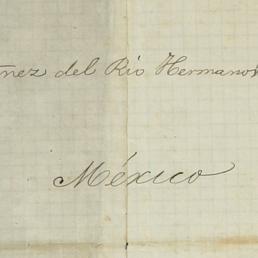 ñez del Río Hermanos
México